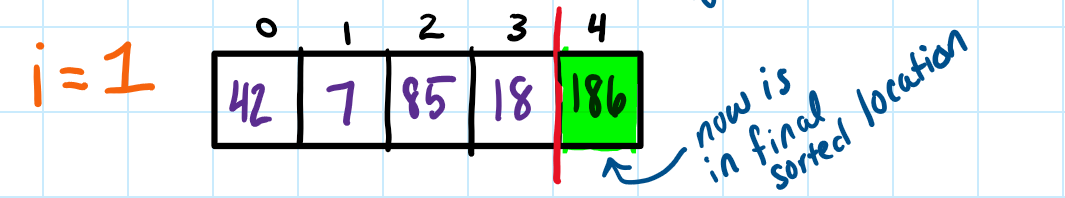 i = 1
0 1 2 3 4
42 7 85 18 186
now is
in final
sorted location